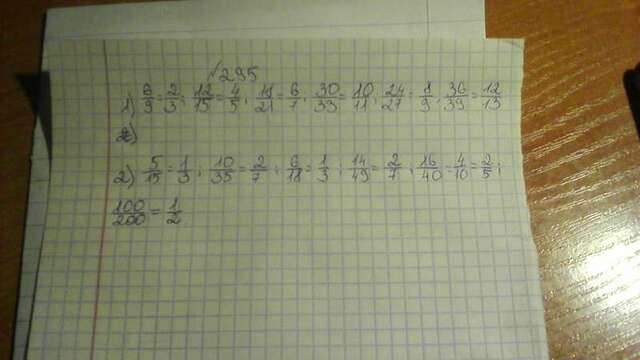 №295
1) 6/9 = 2/3; 12/15 = 4/5; 18/21 = 6/7; 30/33 = 10/11; 24/27 = 8/9; 36/39 = 12/13
2)
2) 5/15 = 1/3; 10/35 = 2/7; 6/18 = 1/3; 14/49 = 2/7; 16/40 = 4/10 = 2/5;
100/200 = 1/2